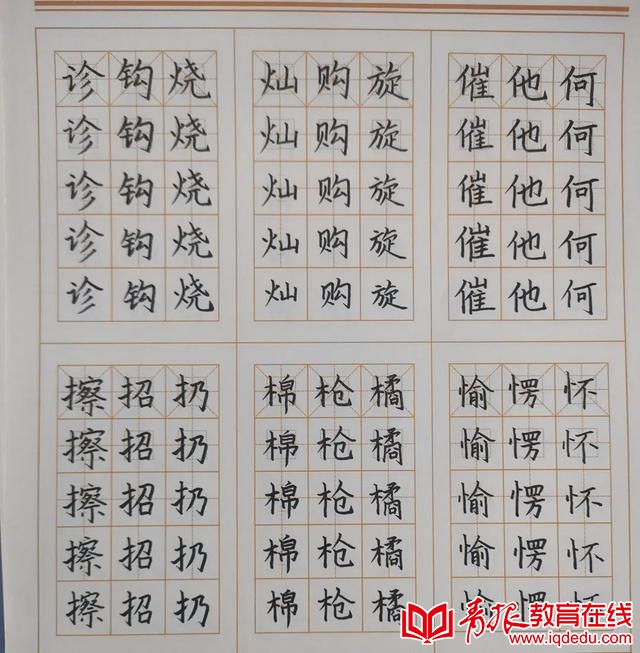 诊钩烧 灿购旋 催他何
诊钩烧 灿购旋 催他何
诊钩烧 灿购旋 催他何
诊钩烧 灿购旋 催他何
诊钩烧 灿购旋 催他何
擦招扔 棉枪橘 愉愕怀
擦招扔 棉枪橘 愉愕怀
擦招扔 棉枪橘 愉愕怀
擦招扔 棉枪橘 愉愕怀
擦招扔 棉枪橘 愉愕怀
青报教育在线
www.iqdedu.com